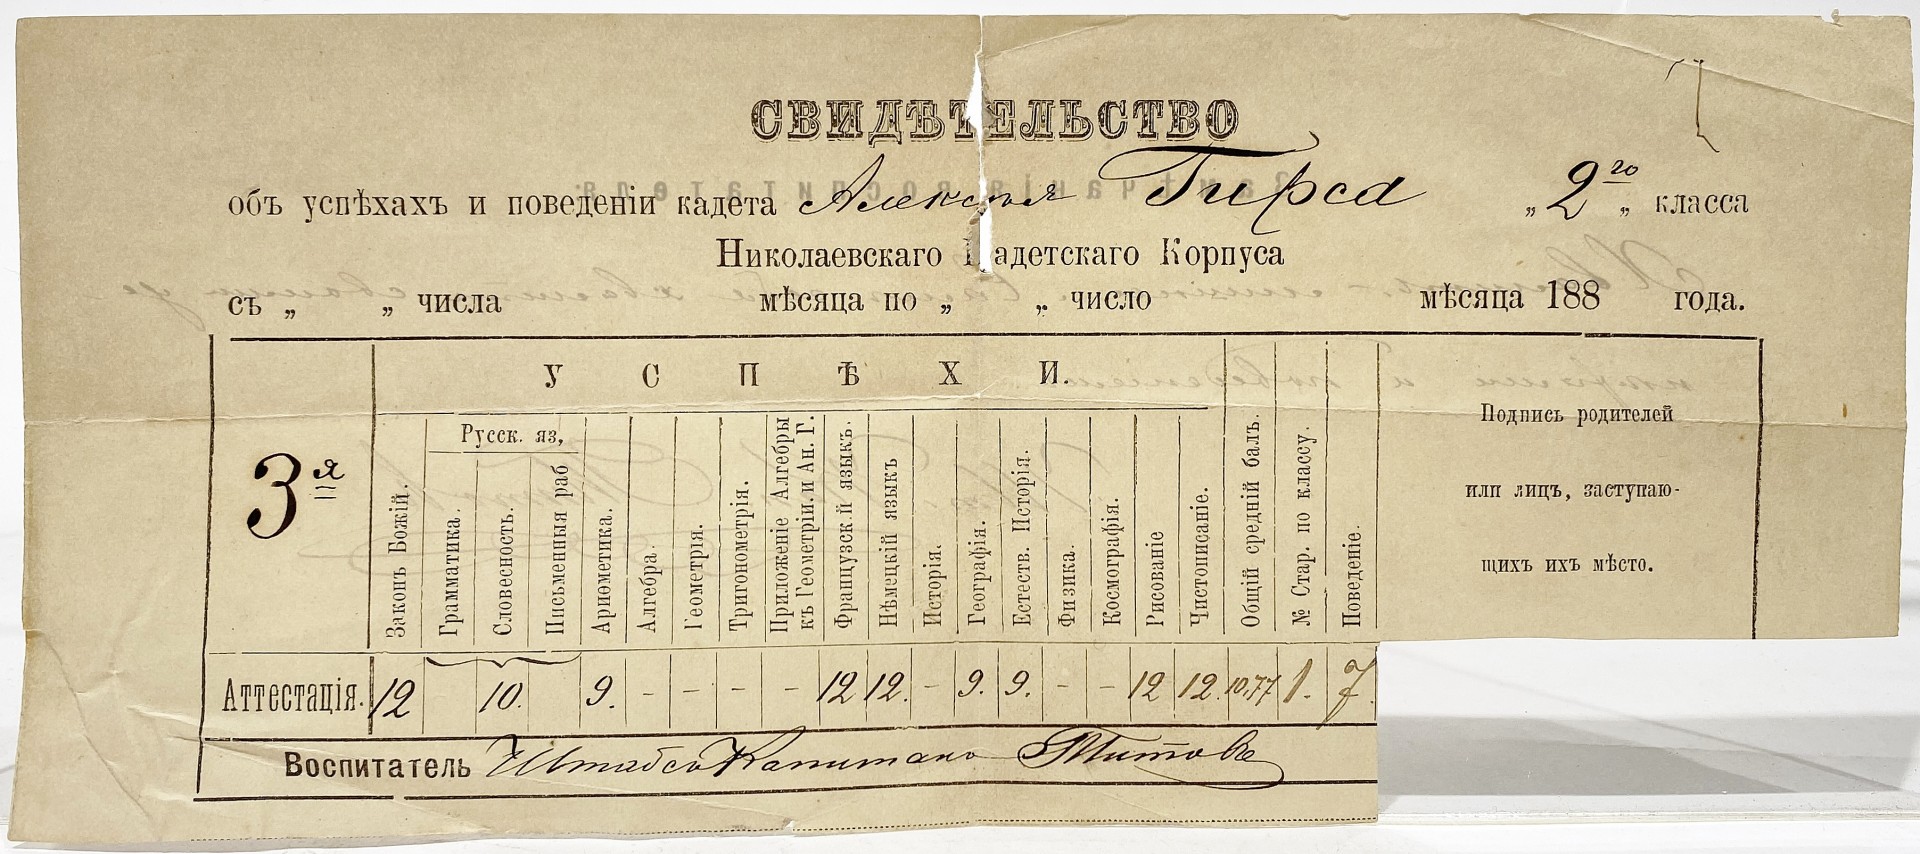 СВИДѢТЕЛЬСТВО
объ успѣхахъ и поведеніи кадета Алексѣя Гирса „ 2го „ класса
Николаевскаго Кадетскаго Корпуса
съ „ „ числа мѣсяца по „ „ число мѣсяца 188 года.
УСПѢХИ.
3я
Русск. яз,
Законъ Божій.
Грамматика.
Словесность.
Письменныя раб
Ариѳметика.
Алгебра.
Геометрія.
Тригонометрія.
Приложеніе Алгебры
къ Геометріи. и Ан. Г.
Французск й языкъ.
Нѣмецкій языкъ
Исторія.
Географія.
Естеств. Исторія.
Физика.
Космографія.
Рисованіе
Чистописаніе.
Общій средній балъ.
№ Стар. по классу.
Поведеніе.
Подпись родителей
или лицъ, заступаю-
щихъ ихъ мѣсто.
Аттестація. 12 10. 9. - - - - 12 12. - 9. 9. - - 12 12. 10,77 1. 7.
Воспитатель Штабсъ Капитанъ Титовъ